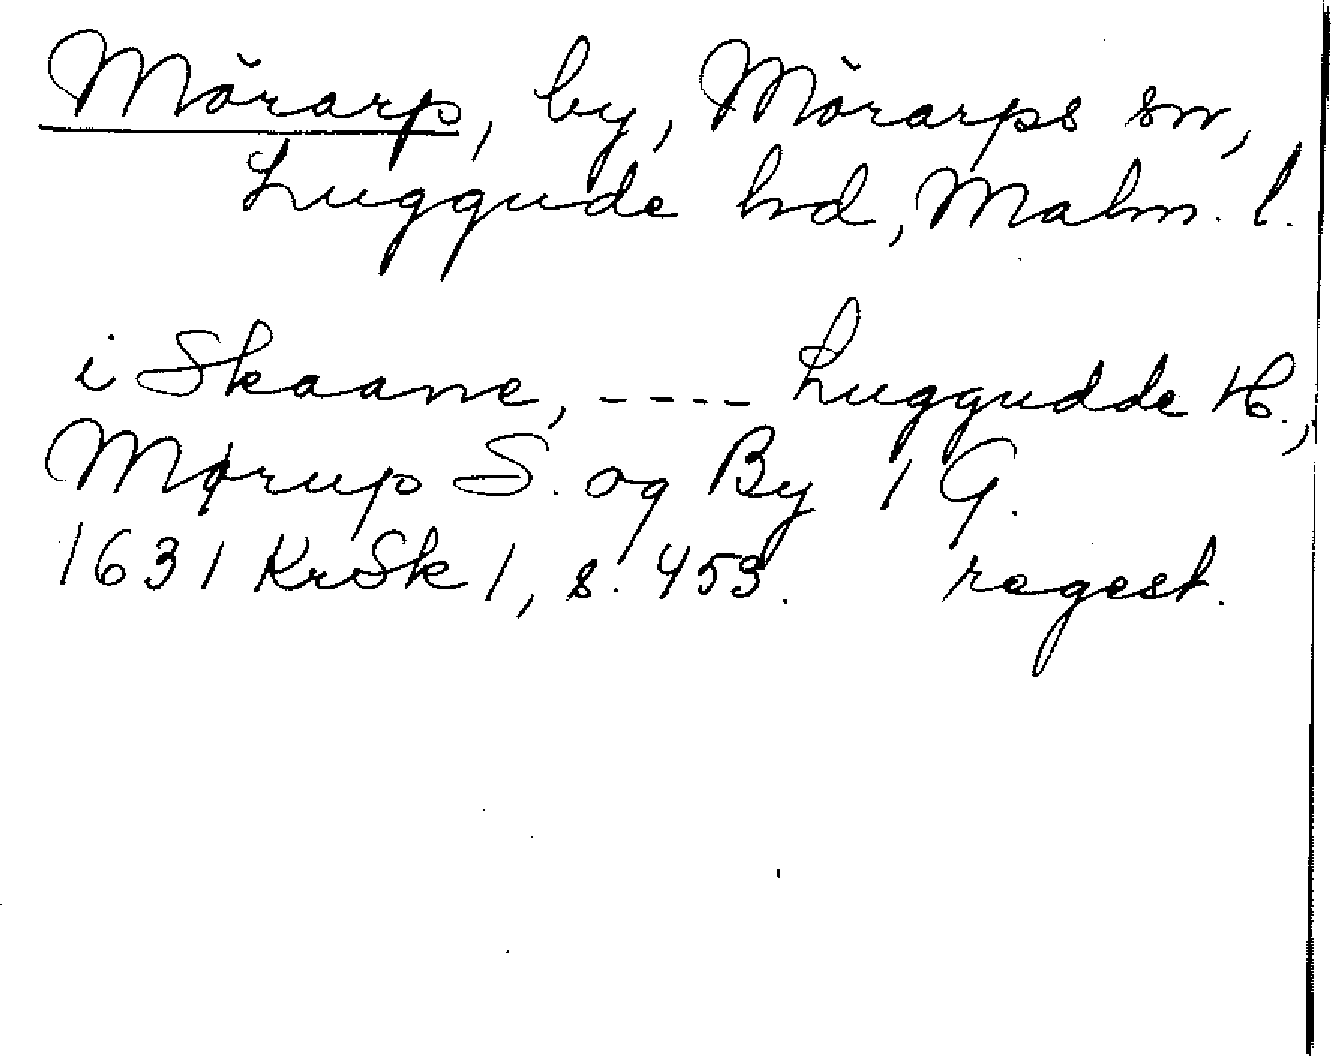 Mörarp, by, Mörarps sn,
Luggude hd, Malm. l.
i Skaane, ---- Luggudde H.,
Mørup S. og By 1 G.
1631 KrSk 1, s. 453. regest.